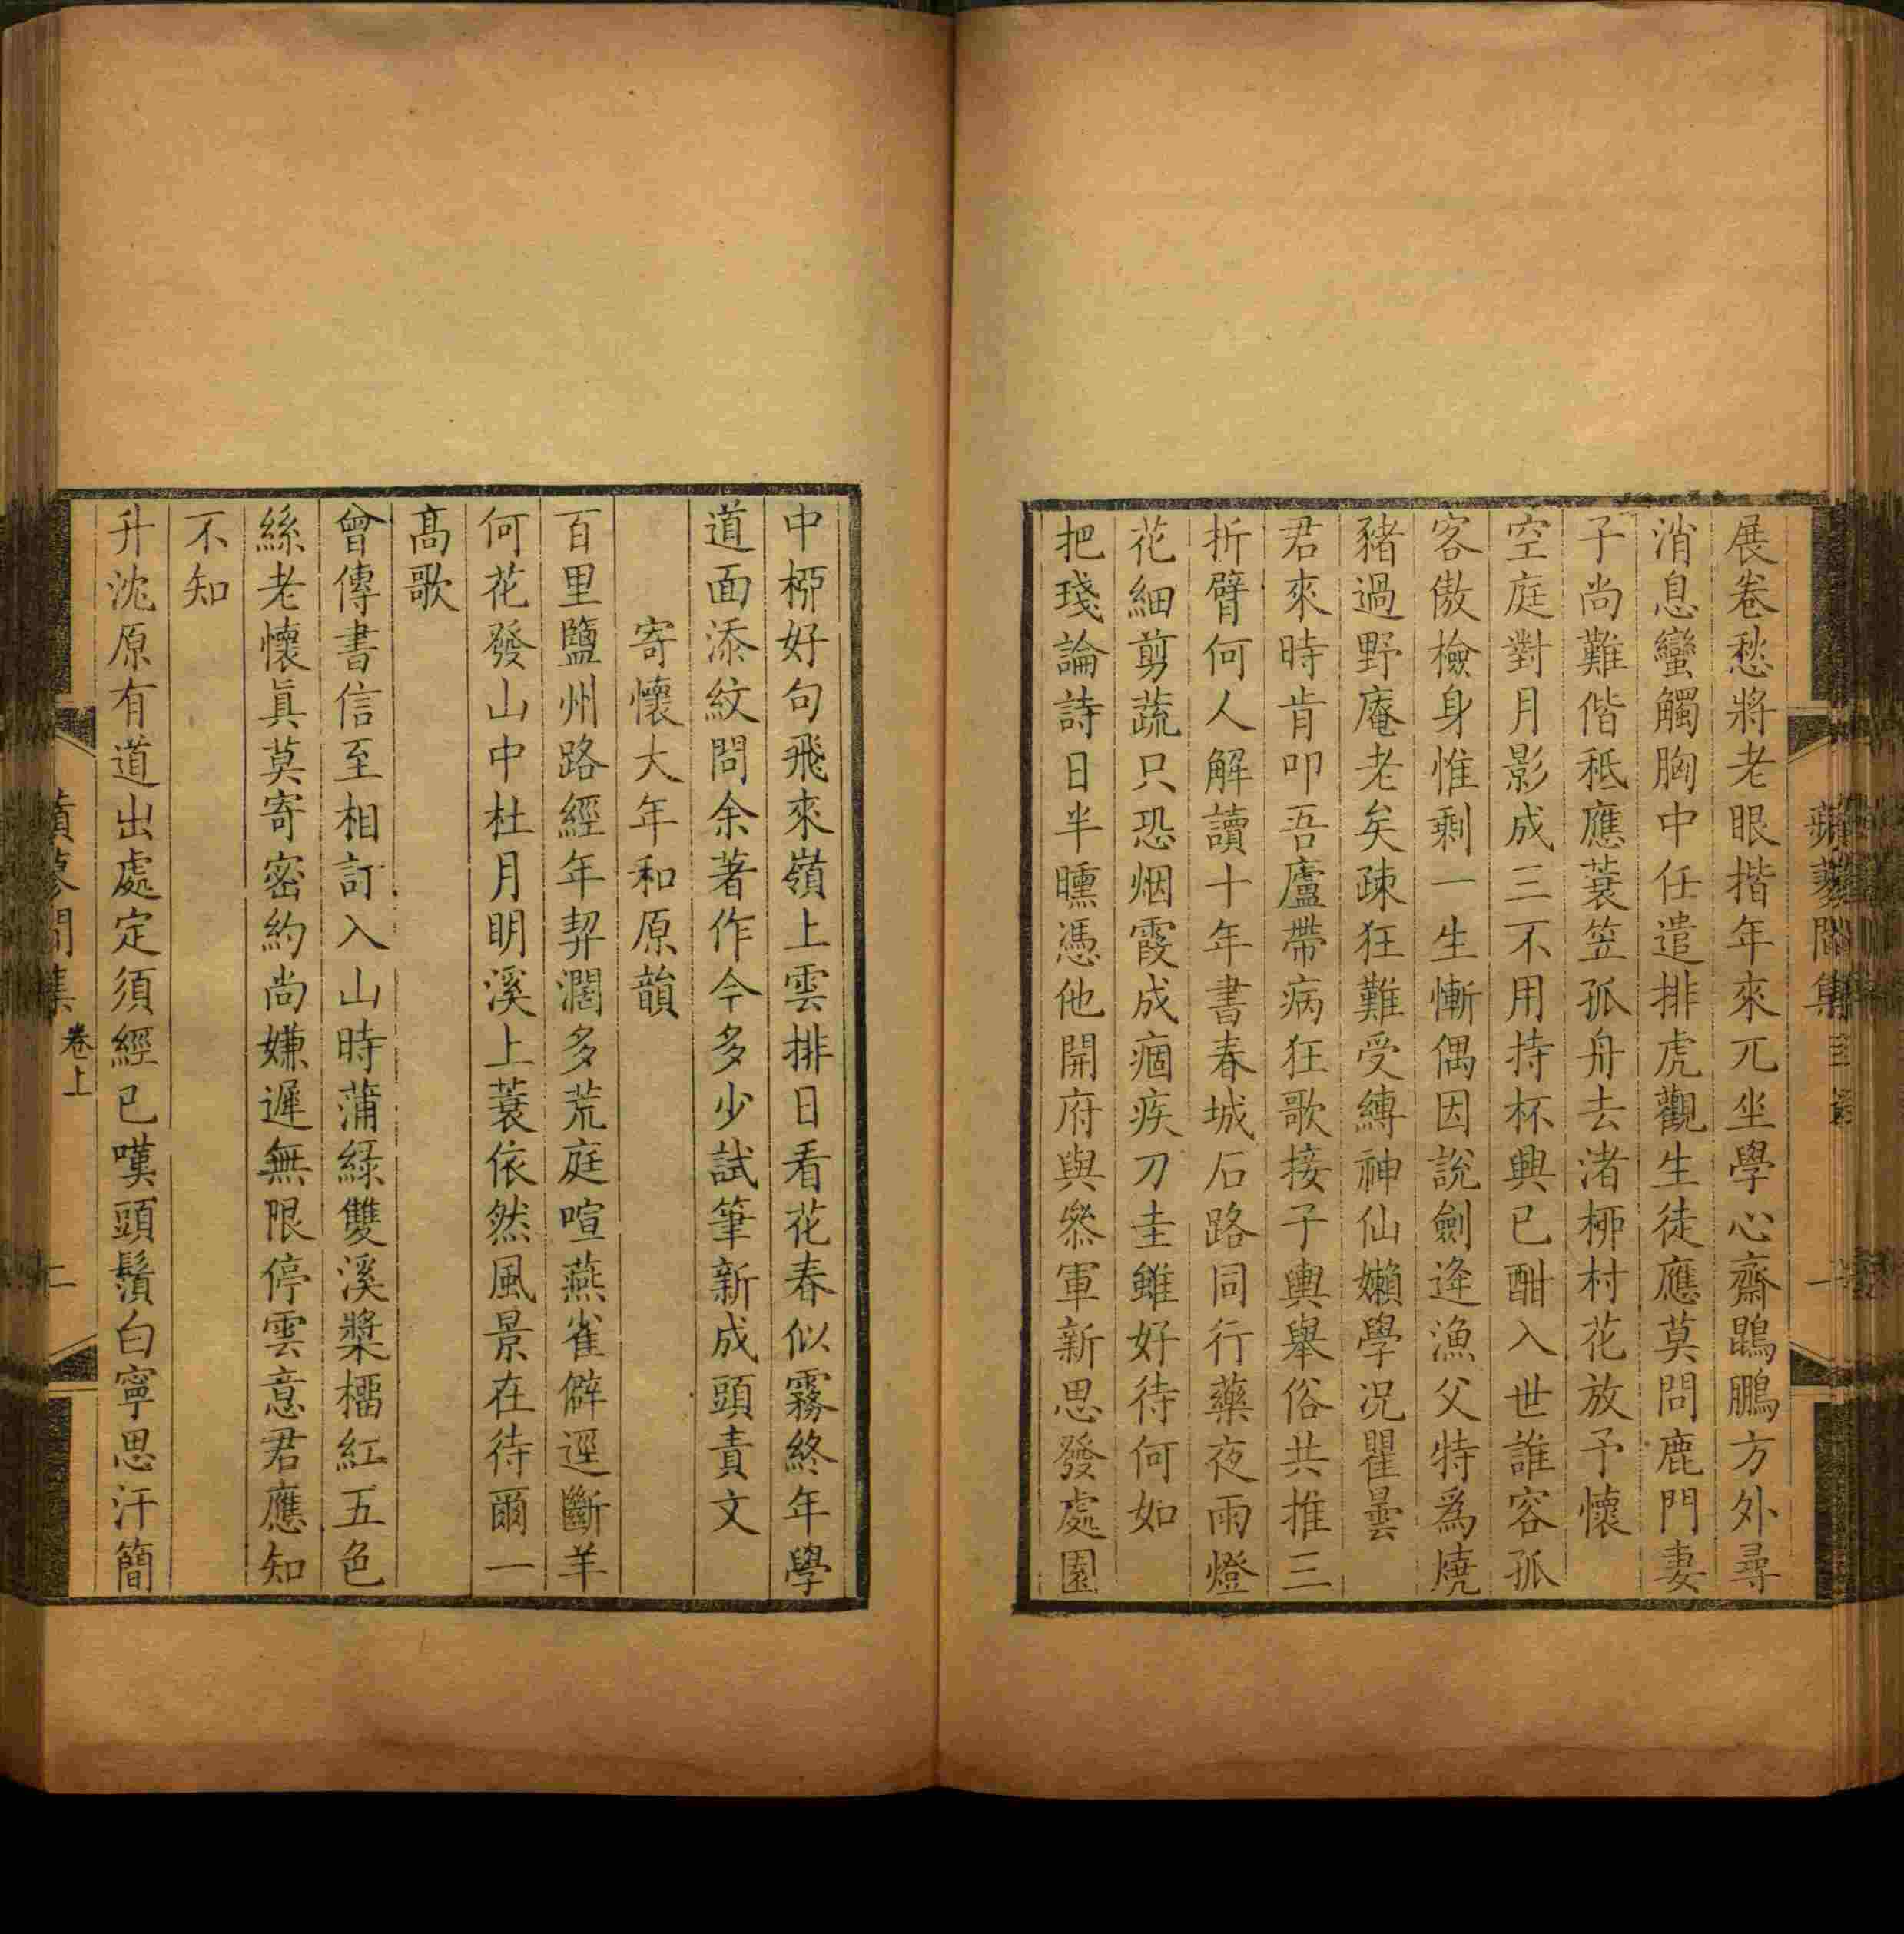 展卷愁將老眼揩年來兀坐學心齋鵾鵬方外尋
消息蠻觸胸中任遣排虎觀生徒應莫問鹿門妻
子尚難偕秪應蓑笠孤舟去渚桺村花放予懷
空庭對月影成三不用持杯興已酣入世誰容孤
客傲檢身惟剩一生慚偶因說劍逢漁父特爲燒
豬過野庵老矣疎狂難受縛神仙嬾學况瞿曇
君來時肯叩吾廬帶病狂歌接子輿舉俗共推三
折臂何人解讀十年書春城石路同行藥夜雨燈
花細剪蔬只恐烟霞成痼疾刀圭雖好待何如
把琖論詩日半曛憑他開府與叅軍新思發處園
中桺好句飛來嶺上雲排日看花春似霧終年學
道面添紋問余著作今多少試筆新成頭責文
寄懷大年和原韻
百里鹽州路經年契濶多荒庭喧燕雀僻逕斷羊
何花發山中杜月明溪上蓑依然風景在待爾一
高歌
曾傳書信至相訂入山時蒲綠雙溪槳橊紅五色
絲老懷眞莫寄密約尚嫌遲無限停雲意君應知
不知
升沈原有道出處定須經已嘆頭鬚白寧思汗簡
卷上